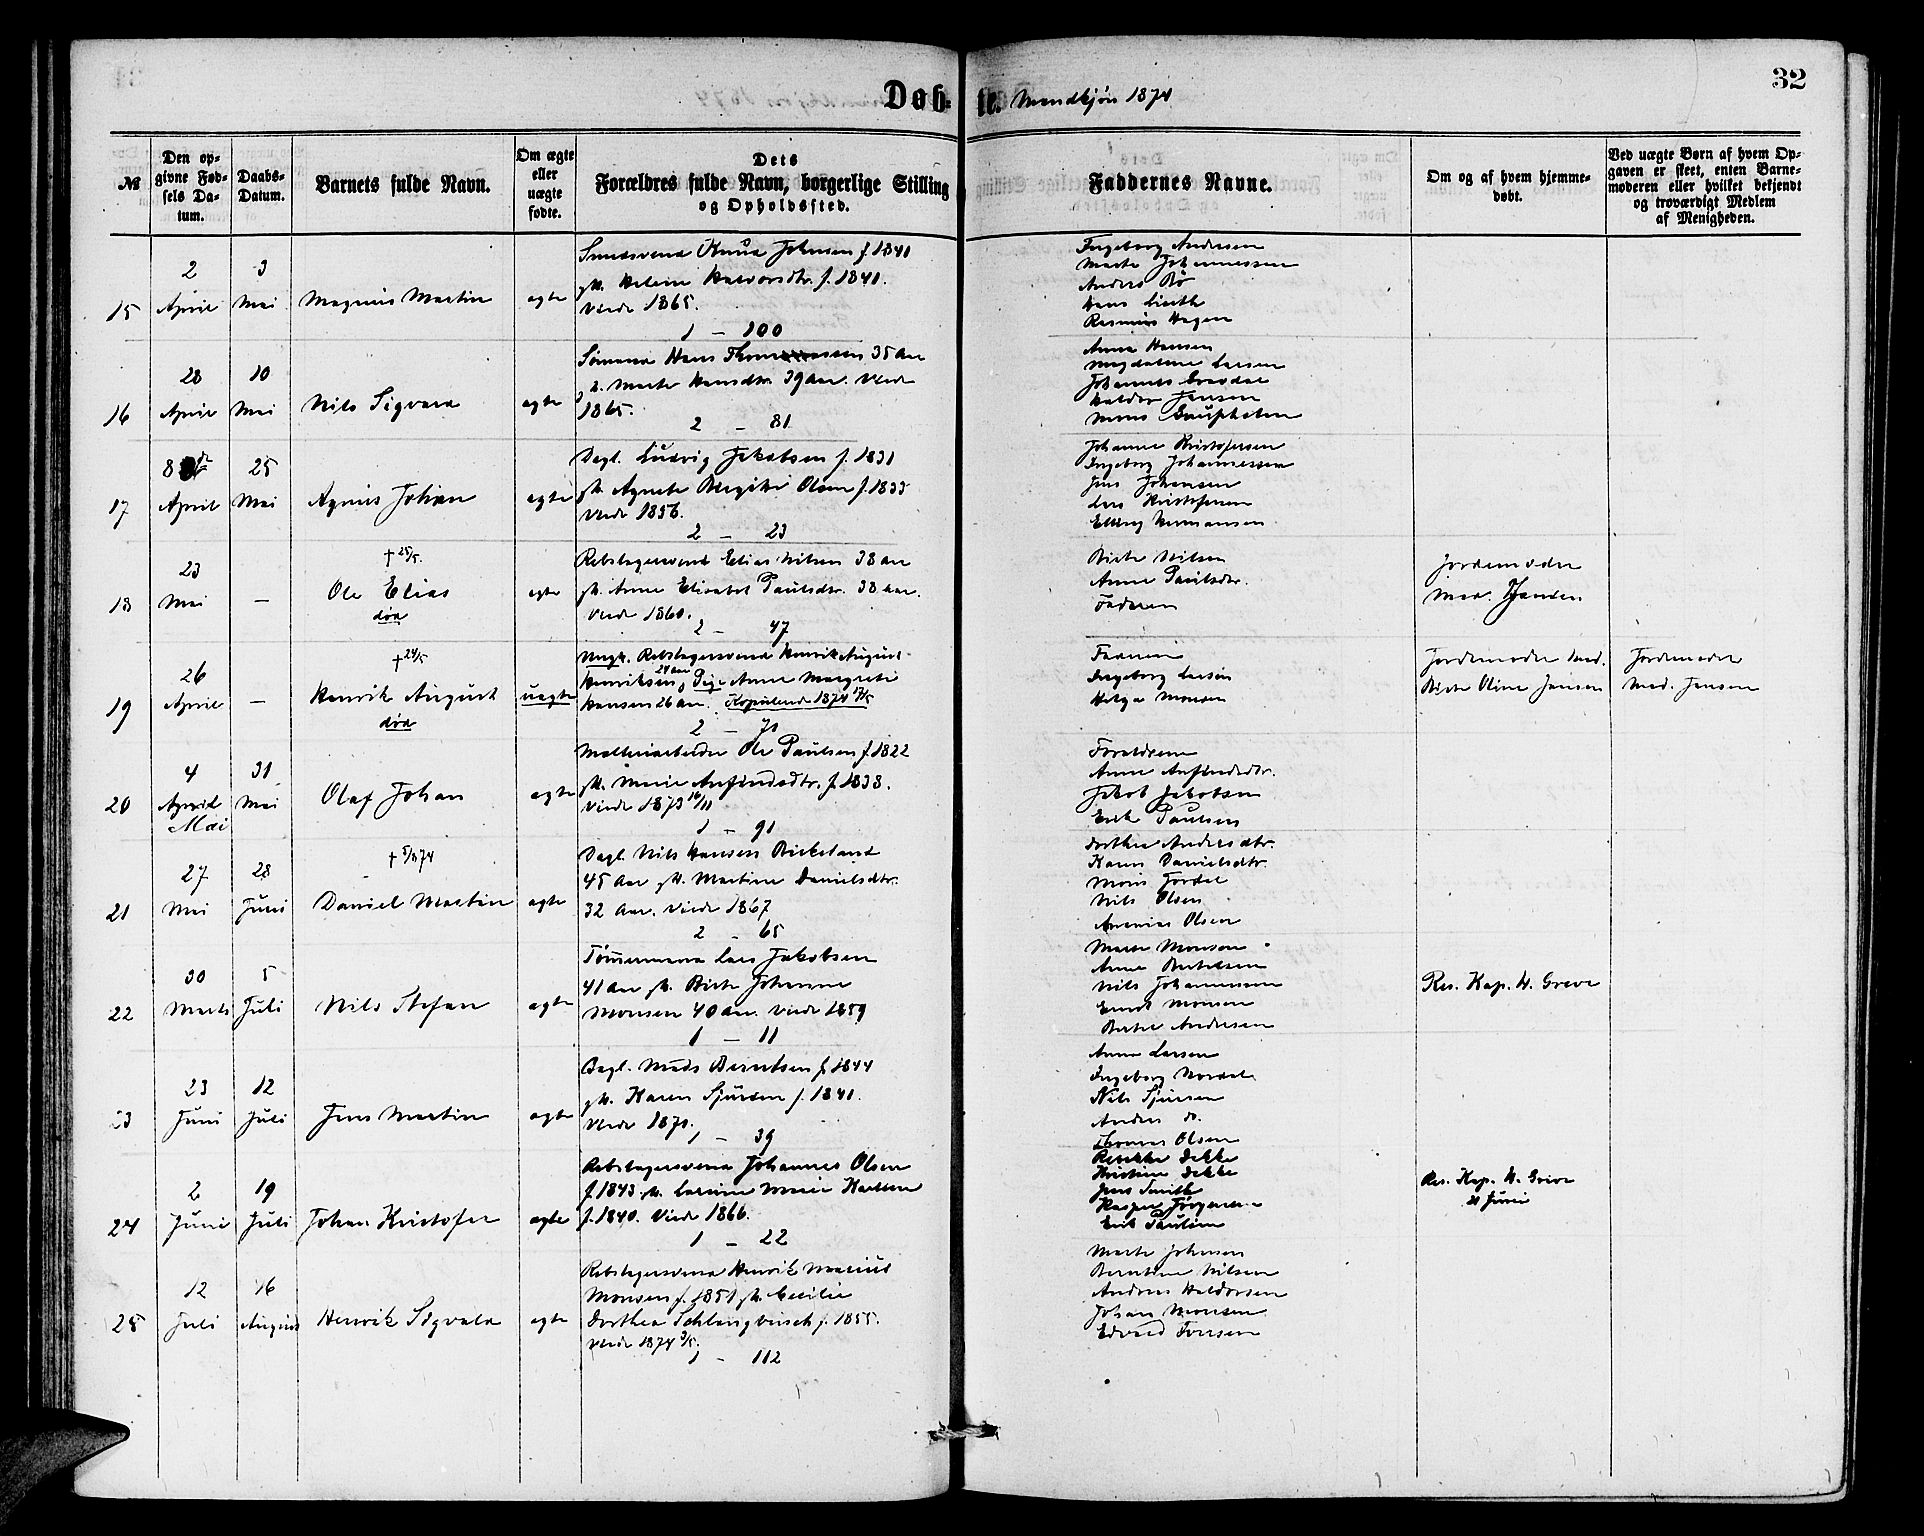 32
Døbte. Mandkjøn 1874
№
Den opgivne Fødsels Datum.
Daabs-Datum.
Barnets fulde Navn.
Om ægte eller uægte fødte.
Dets Forældres fulde Navn, borgerlige Stilling og Opholdssted.
Faddernes Navne.
Om og af hvem hjemmedøbt.
Ved uægte Børn af hvem Opgaven er skeet, enten Barnemoderen eller hvilket bekjendt og troværdigt Medlem af Menigheden.
15
2 April
3 Mai
Magnus Martin
ægte
Smedsvend Knud Johnsen f. 1841
gH. Helene Halvorsdtr. f. 1841.
Viede 1865.
1 – 100
Ingeborg Andersen
Marte Johannessen
Anders Bø
Hans
Rasmus Hagen
16
28 April
10 Mai
Nils Sigvard
ægte
Sømand Hans 35 Aar
Marte Hansdtr. 39 Aar. Viede
1865.
2 – 81
Anna Hansen
Magdalene Larsen
Johannes
Haldor Jansen
Mons
17
8de April
25 Mai
Agnus Johan
ægte
Dagl. Ludvig Jakobsen f. 1831
gH. Agnete Olsen f. 1833
Viede 1856.
2 – 23
Johanne Kristofersen
Ingeborg Johannessen
Jens Johansen
Lars Kristofersen
Hermansen
18
23 Mai
–
† 25/5.
Ole Elias
død
ægte
Rebslagersvend Elias Nilsen 38 Aar
gH. Anne Elisabet Paulsdtr. 38 Aar.
Viede 1860.
2 – 47
Birte Nilsen
Anne Paulsdtr.
Faderen
Jordemoder
Mad. Jansen
19
26 April
–
† 24/5
Henrik August
død
uægte
Ungk. Rebslagersvend Henrik August
Henriksen 24 Aar Pige Anne Margrete
Hansen 26 Aar. Kopulerede 1874
2 – 71
Faderen
Ingeborg Larsen
Helga Monsen
Jordemoder Mad.
Birte Oline Jansen
Jordemoder
Mad. Jansen
20
4 April
Mai
31 Mai
Olaf Johan
ægte
Ole Paulsen f. 1822
gH. Marie Anfindsdtr. f. 1838.
Viede 1873 16/11
1 – 91
Forældrene
Anne Anfindsdtr.
Jakob Jakobsen
Erik Paulsen
21
27 Mai
28 Juni
† 5/8 74
Daniel Martin
ægte
Dagl. Nils Hansen Birkeland
45 Aar gH. Martine Danielsdtr.
32 Aar. Viede 1867
2 – 65
Dorthea Andersdtr.
Karen Danielsdtr.
Mons Jordal
Nils Olsen
Ananias Olsen
22
30 Marts
5 Juli
Nils Stefan
ægte
Tømmermand Lars Jakobsen
41 Aar gH. Birte Johanne
Monsen 40 Aar. Viede 1859
1 – 11
Marte Monsen
Anne Bertelsen
Nils Johannessen
Monsen
Bertel Andersen
Res. Kap. H. Greve
23
23 Juni
12 Juli
Jens Martin
ægte
Dagl. Mads Berntsen f. 1844
gH. Karen Sjursen f. 1841.
Viede 1871.
1 – 39
Anna Larsen
Ingeborg
Nils Sjursen
Anders do.
Thomas Olsen
24
2 Juni
19 Juli
Johan Kristofer
ægte
Rebslagersvend Johannes Olsen
f. 1843 gH. Larsine Marie Karlsen
f. 1840. Viede 1866.
1 – 22
Rebekka Dekke
Kristine Dekke
Jens Smith
Kasper Jörgensen
Erik Paulsen
Res. Kap. H. Greve
21 Juni
25
12 Juli
16 August
Henrik Sigvald
ægte
Rebslagersvend Henrik Marius
Monsen f. 1851 gH. Cecilie
Dorthea Schlangbusch f. 1855.
Viede 1874 3/5.
1 – 112
Marte Johnsen
Berntine Nilsen
Andreas Haldorsen
Johan Monsen
Edvard Iversen